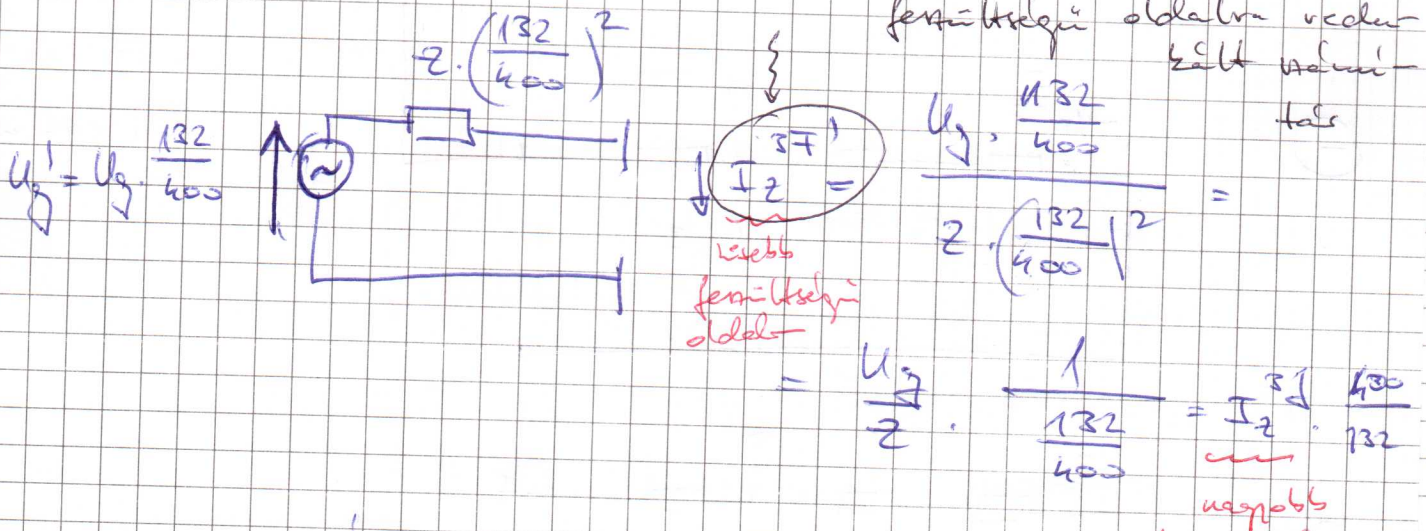 feszültségű oldalra redu-
kált számí-
tás
Z·(132/400)²
U_g' = U_g · 132/400
~
I_z^3F' = (U_g · 132/400) / (Z · (132/400)²) =
kisebb
feszültségű
oldal
= U_g/Z · 1/(132/400) = I_z^3F · 400/132
nagyobb